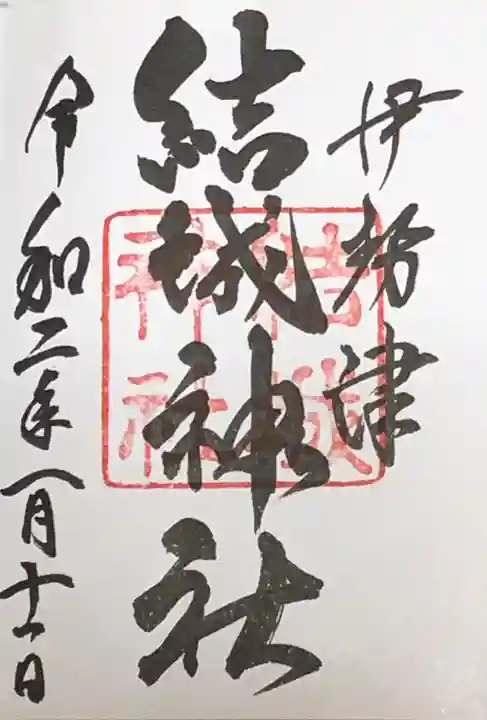 伊勢津
結城神社
結城神社
令和二年一月十一日